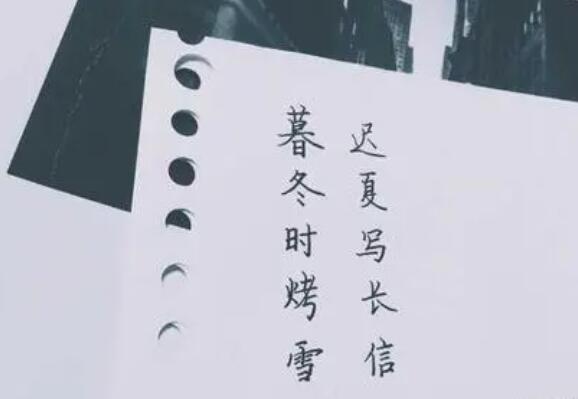 暮冬时烤雪
迟夏写长信